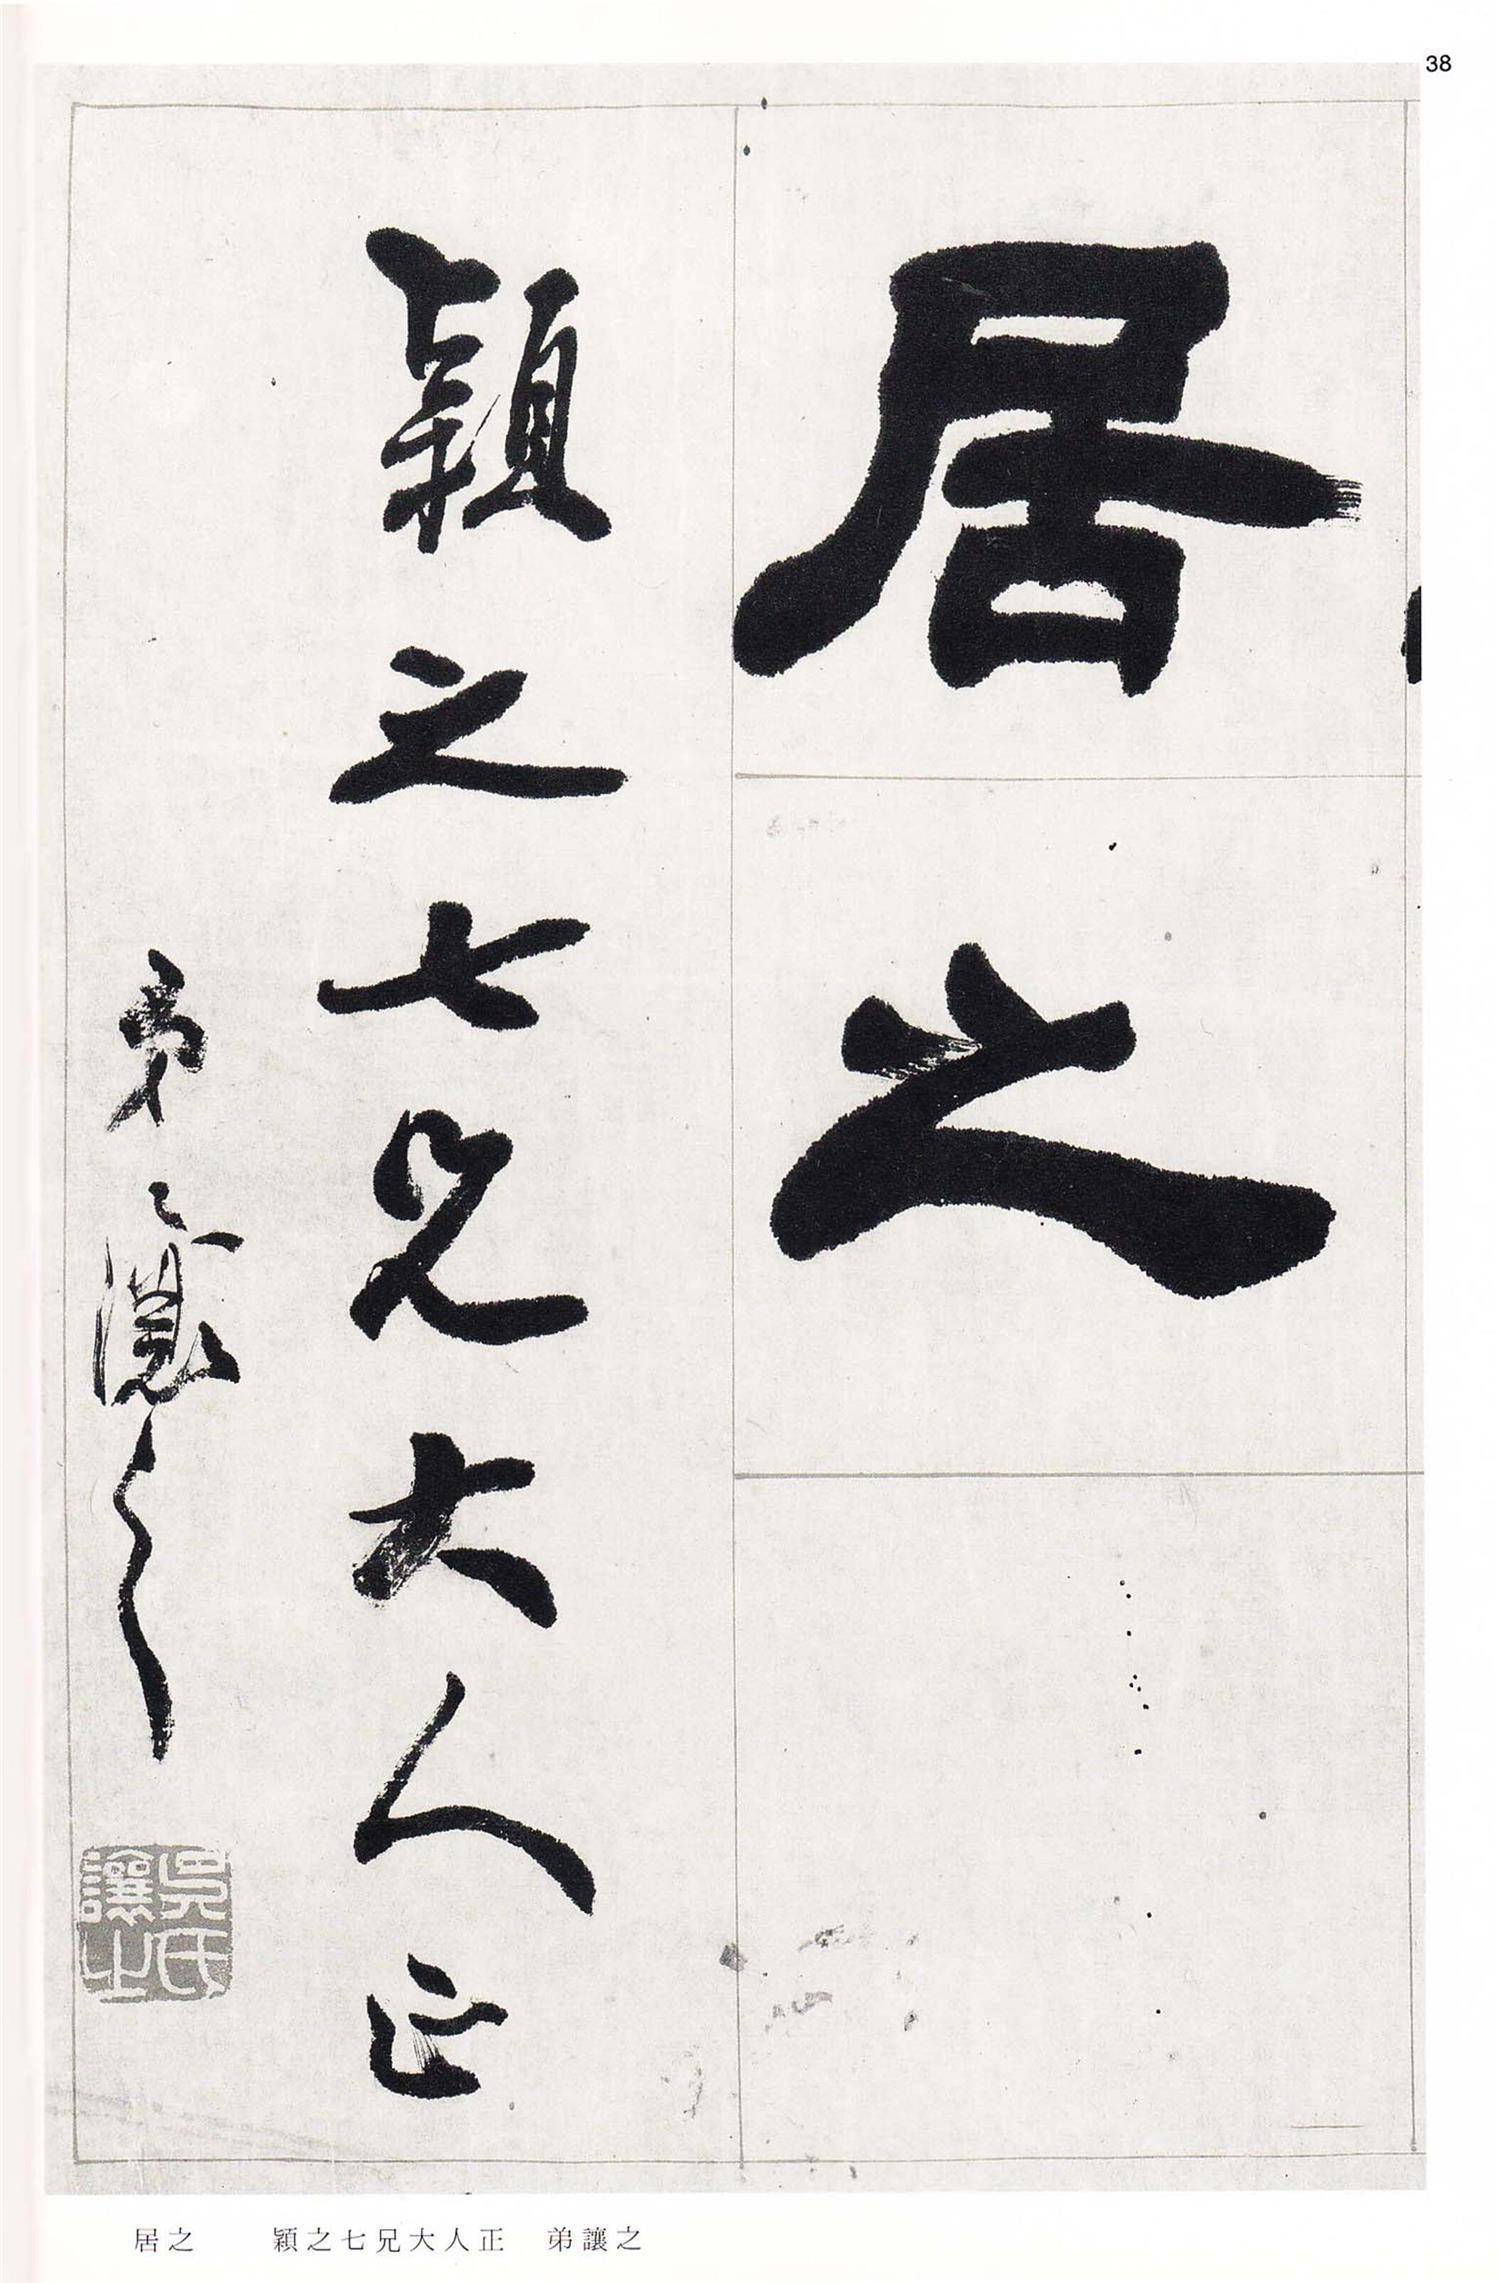 38
居之
穎之七兄大人正
弟讓之
吳氏
讓之
居之　穎之七兄大人正　弟讓之